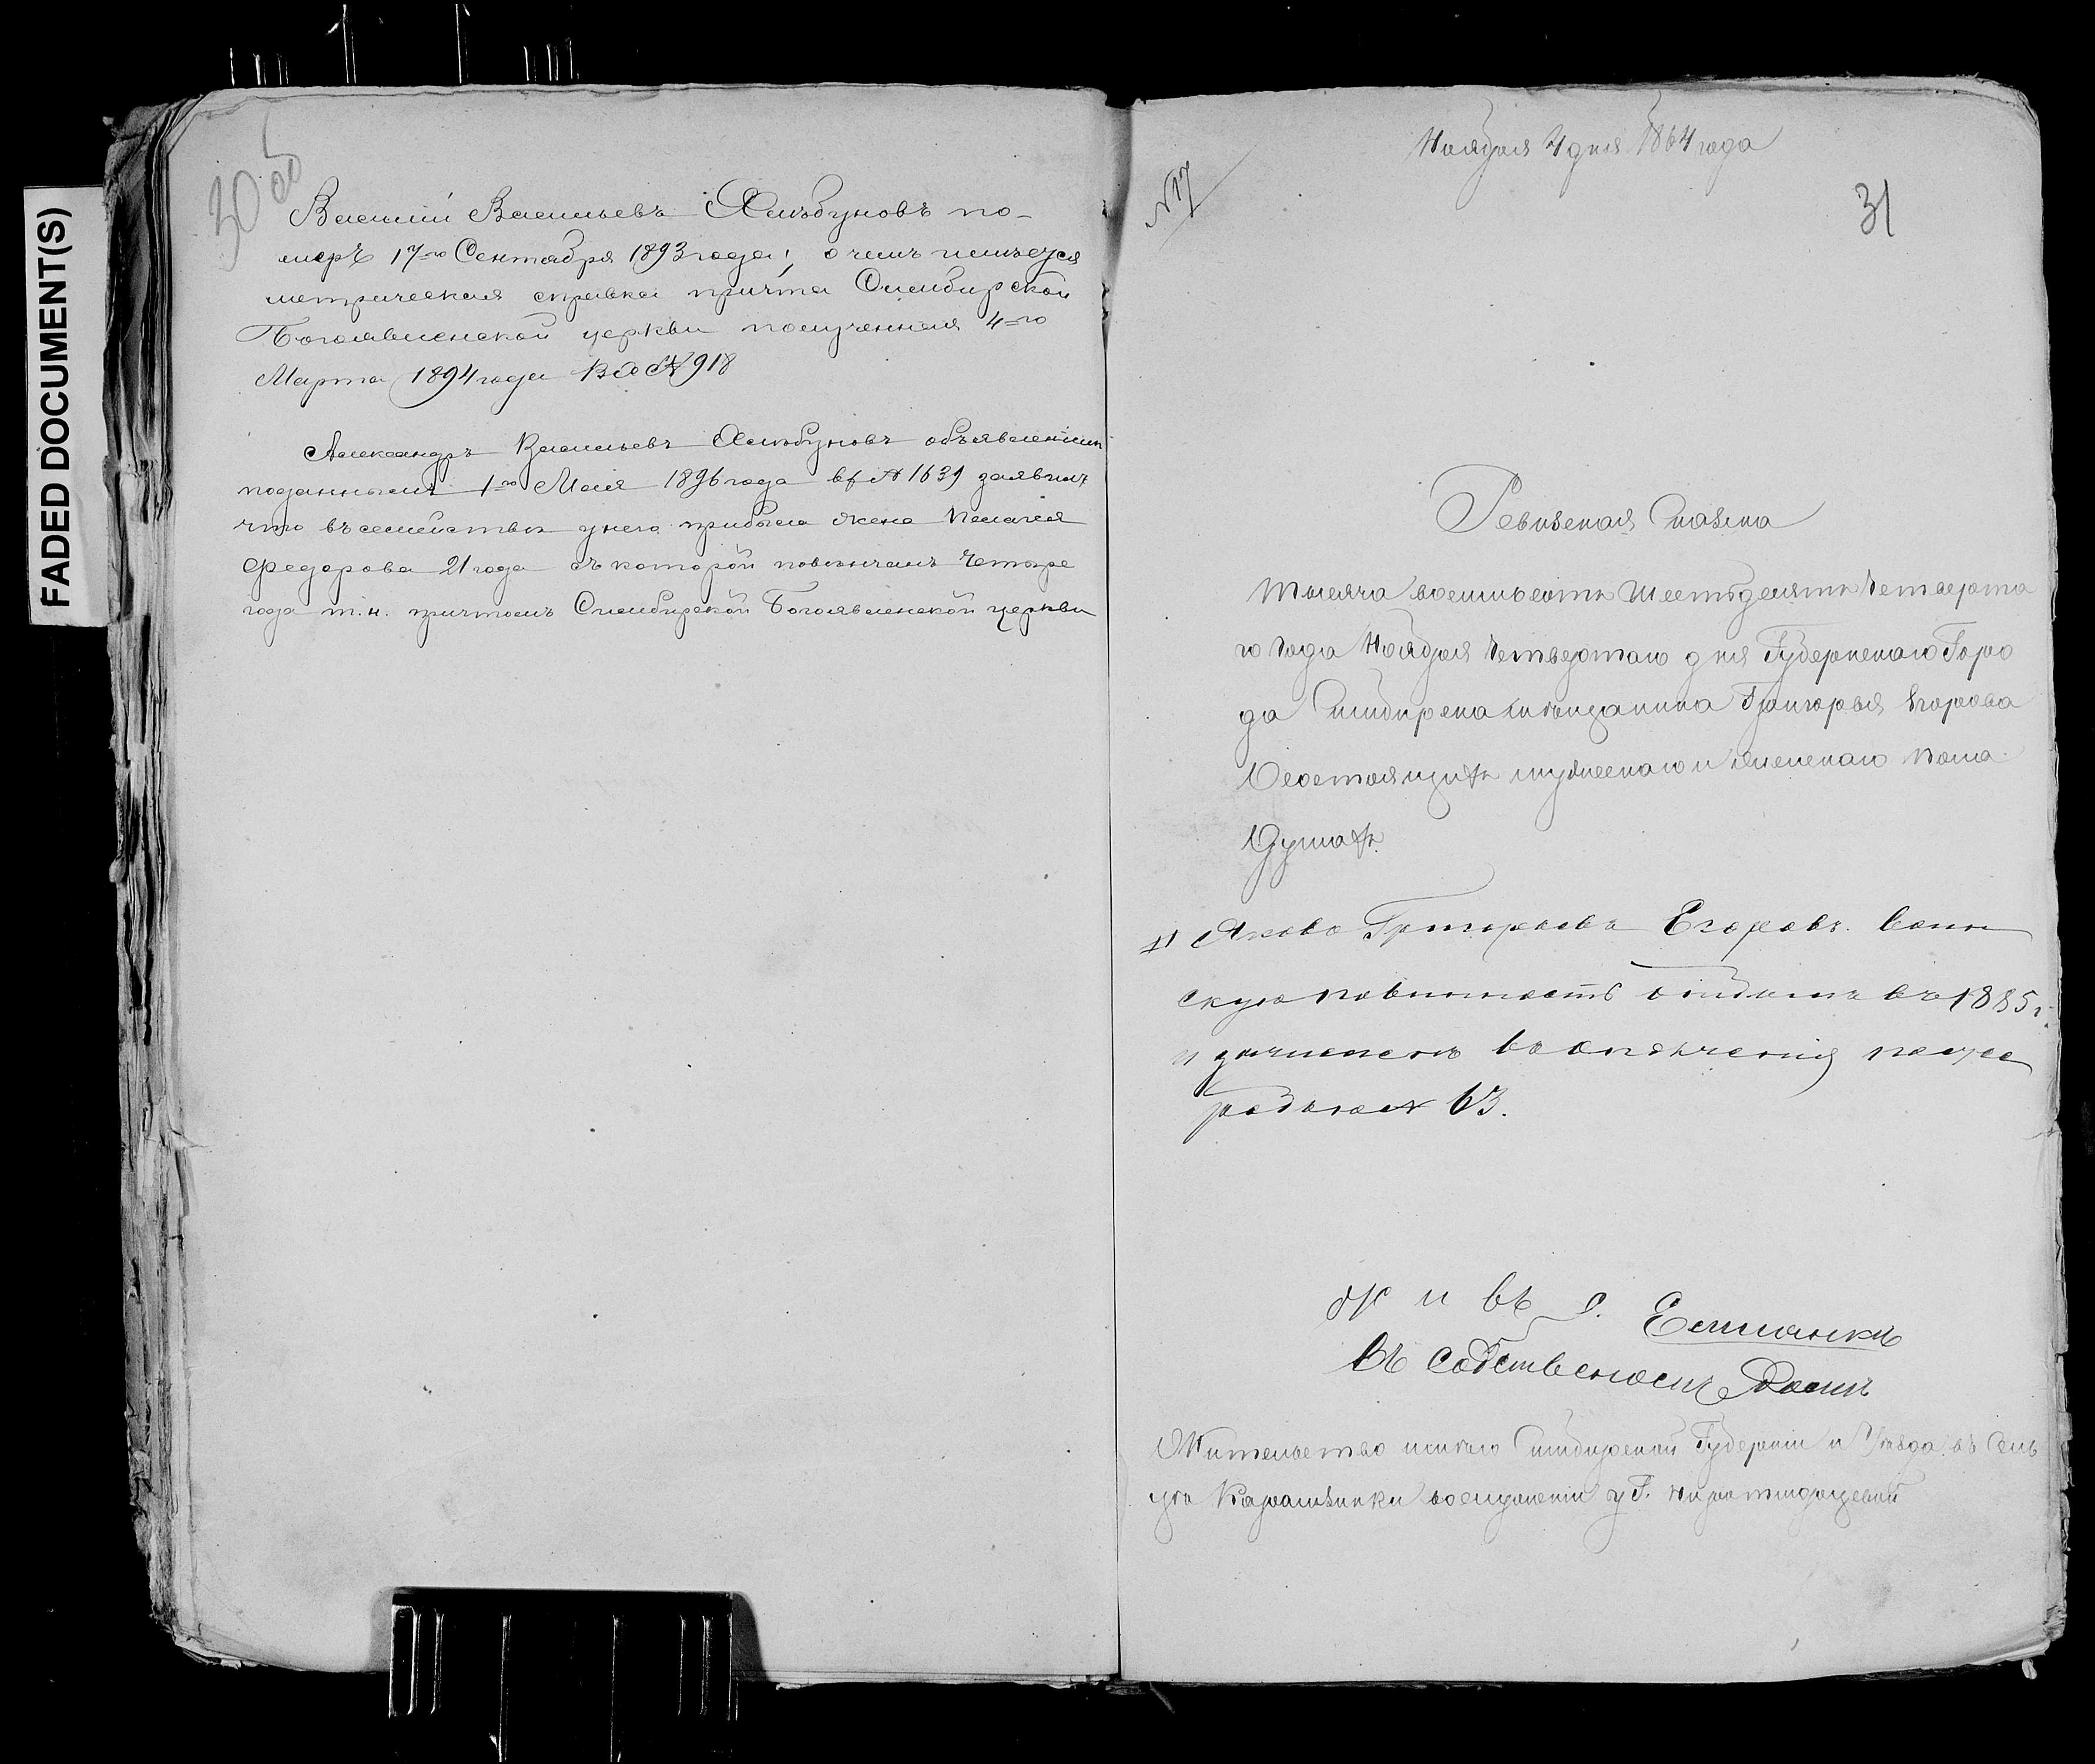 FADED DOCUMENT(S)
30 об
Василий Васильевъ Ялыбуновъ по-
меръ 17го Сентября 1893 года; о чемъ имѣется
метрическая справка причта Симбирской
Богоявленской церкви полученная 4го
Марта 1894 года № 918
Александръ Васильевъ объявленіемъ
поданнымъ 1го Мая 1896 года № 1639 заявилъ
что въ семействѣ у него прибыла жена Пелагея
Федорова 21 года съ которой повѣнчанъ четыре
года т.н. причтомъ Симбирской Богоявленской церкви
Ноября 4 дня 1864 года
№ 17
31
Ревизская Сказка
Тысяча восемьсотъ Шестьдесятъ Четверта
го Года Ноября Четвертаго дня Губернскаго Горо
да Симбирска мѣщанина Григорья Егорова
Состоящихъ мужескаго и женскаго пола
Душахъ.
Яковъ Григорьевъ Егоровъ воин
скую повинность отбылъ въ 1885 г.
и зачисленъ въ ополченія по же
ребью № 63.
Ж и въ с.
въ собственномъ Домѣ
Жительство имѣю Симбирской Губерніи и Уѣзда въ Сель
цѣ Карамзинки